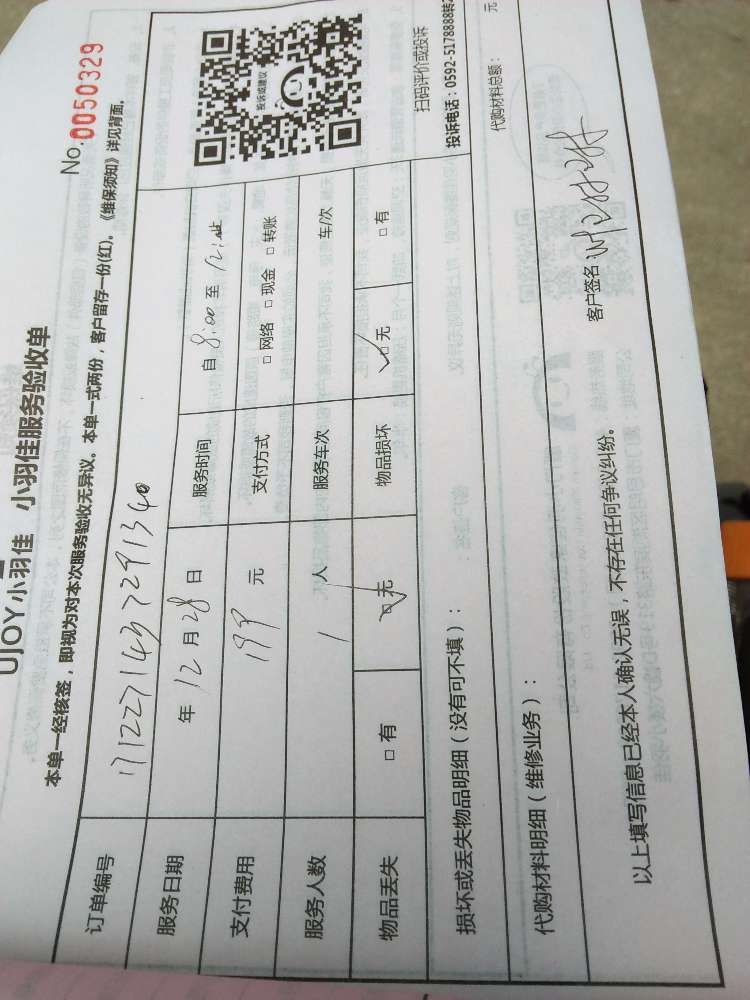 UJOY小羽佳 小羽佳服务验收单
No.0050329
本单一经核签，即视为对本次服务验收无异议。本单一式两份，客户留存一份(红)。《维保须知》详见背面。
订单编号 1712271437291340
服务日期 年 12 月 28 日 服务时间 自 8:00 至
支付费用 199 元 支付方式 □ 网络 □ 现金 □ 转账
服务人数 1 人 服务车次 车/次
物品丢失 □ 有 □ 无 物品损坏 □ 无 □ 有
投诉或建议
扫码评价或投诉
投诉电话：0592-5178888转
损坏或丢失物品明细（没有可不填）：
代购材料明细（维修业务）： 代购材料总额： 元
以上填写信息已经本人确认无误，不存在任何争议纠纷。 客户签名：